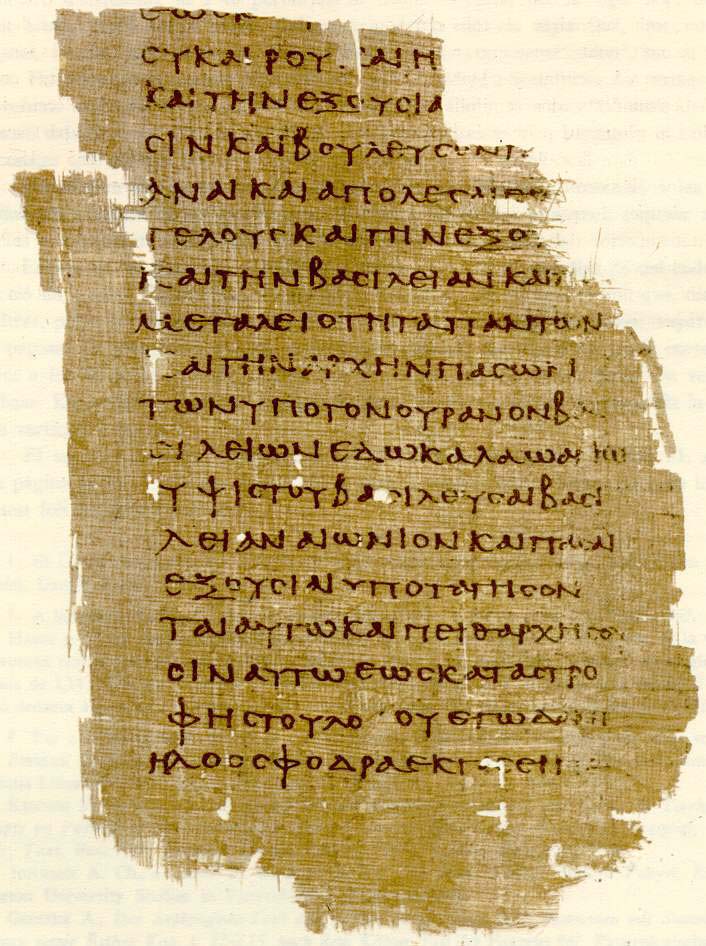 ΕΩΣ
ΣΥ ΚΑΙΡΟΥ ΚΑΙ Η
ΚΑΙ ΤΗΝ ΕΞΟΥΣΙΑ
ΣΙΝ ΚΑΙ ΒΟΥΛΕΥΣΟΝΤ
ΑΝΑΙ ΚΑΙ ΑΠΟΛΕΣΑΙ ΕΩ
ΤΕΛΟΥΣ ΚΑΙ ΤΗΝ ΕΞΟΥ
ΚΑΙ ΤΗΝ ΒΑΣΙΛΕΙΑΝ ΚΑΙ Τ
ΜΕΓΑΛΕΙΟΤΗΤΑ ΠΑΝΤΩΝ
ΚΑΙ ΤΗΝ ΑΡΧΗΝ ΠΑΣΩΝ
ΤΩΝ ΥΠΟ ΤΟΝ ΟΥΡΑΝΟΝ ΒΑ
ΣΙΛΕΙΩΝ ΕΔΩΚΑ ΛΑΩ ΑΓΙΩ
ΥΨΙΣΤΟΥ ΒΑΣΙΛΕΥΣΑΙ ΒΑΣΙ
ΛΕΙΑΝ ΑΙΩΝΙΟΝ ΚΑΙ ΠΑΣΑΙ
ΕΞΟΥΣΙΑΙ ΥΠΟΤΑΓΗΣΟΝ
ΤΑΙ ΑΥΤΩ ΚΑΙ ΠΕΙΘΑΡΧΗΣΟΥ
ΣΙΝ ΑΥΤΩ ΕΩΣ ΚΑΤΑΣΤΡΟ
ΦΗΣ ΤΟΥ ΛΟΓΟΥ ΕΓΩ ΔΑΝΙ
ΗΛΟΣ ΣΦΟΔΡΑ ΕΚΣΤΑΣΕΙ